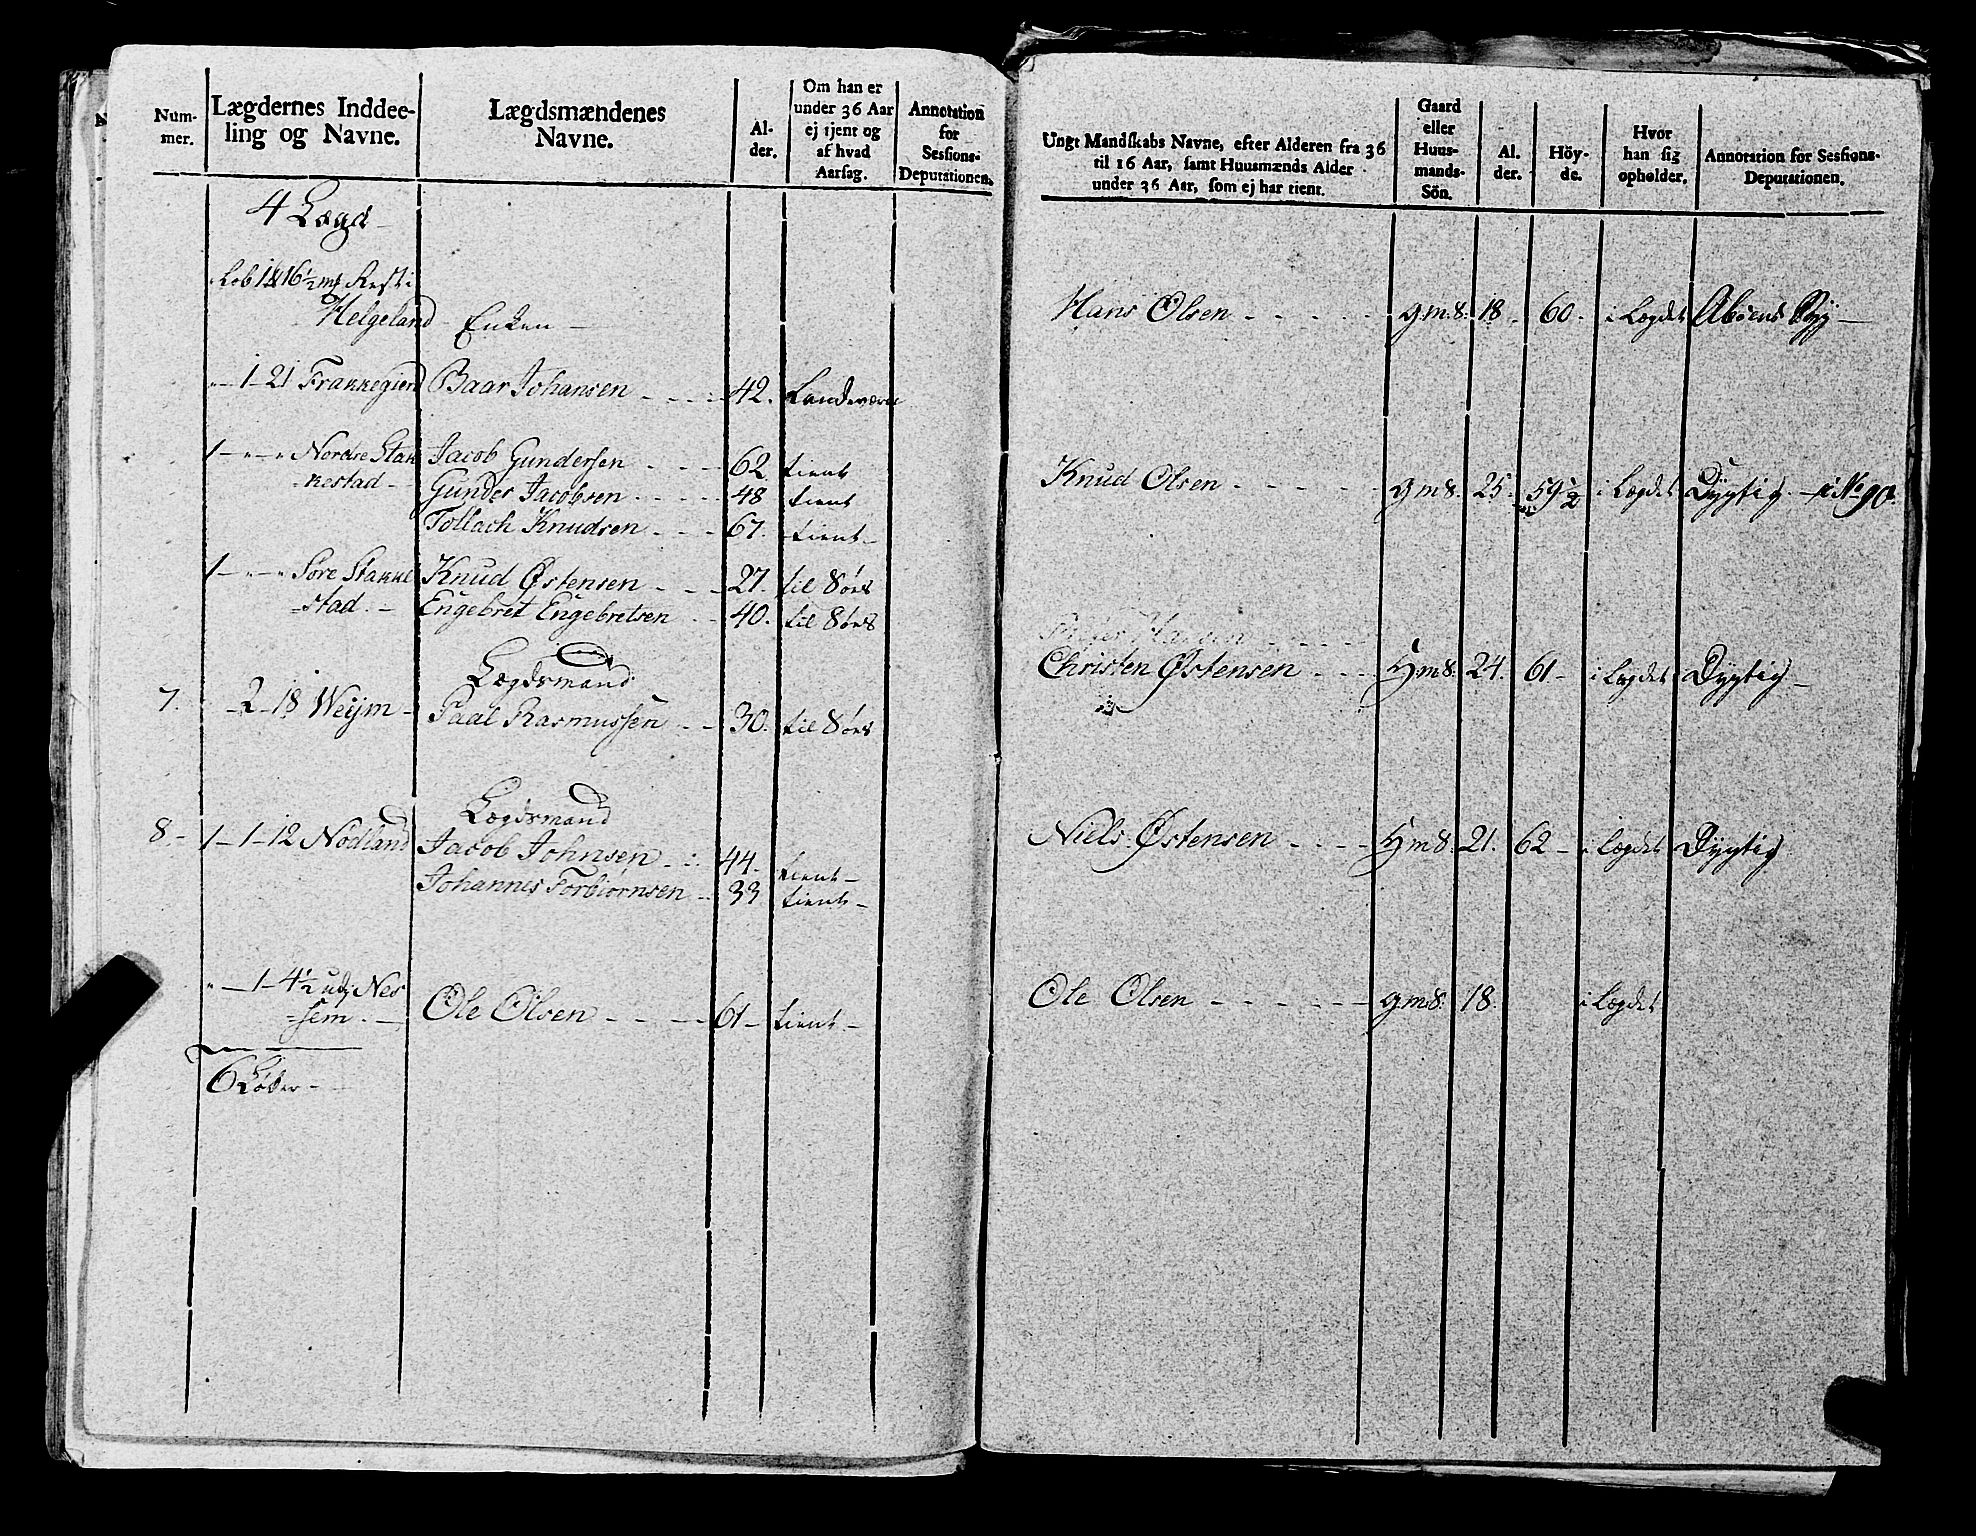 Num-
mer.
Lægdernes Inddee-
ling og Navne.
Lægdsmændenes
Navne.
Al-
der.
Om han er
under 36 Aar
ej tjent og
af hvad
Aarsag.
Annotation
for
Sessions-
Deputationen.
4 Lægd
Løb 1 16 1/2 mk Rest i
Helgeland - Enken -
„ - 1 - 21 Frakkegierd Baar Johansen 42. Landeværn
1 - „ - „ Nordre Stak Jacob Gundersen 62 tient
kestad - Gunder Jacobsen 48 tient
Tollach Knudsen 67. tient -
1 - „ - „ Søre Stakke Knud Østensen 27. til Søes
=stad. - Engebret Engebretsen 40. til Søes
Lægdsmand
7. - 2 - 18 Weijm - Paal Rasmussen 30. til Søes
Lægdsmand
8 - 1 - 1 - 12 Nødland Jacob Johnsen 44. tient -
Johannes Torbiørnsen 33 tient -
„ - 1 - 4 1/2 udj Nes Ole Olsen 61 - tient -
=sem. -
6 Løber -
Ungt Mandskabs Navne, efter Alderen fra 36
til 16 Aar, samt Huusmænds Alder
under 36 Aar, som ej har tient.
Gaard
eller
Huus-
mands-
Sön.
Al.
der.
Höy-
de.
Hvor
han sig
opholder.
Annotation for Sessions-
Deputationen.
Hans Olsen gm.s. 18. 60. i Lægdet
Knud Olsen gms. 25. 59 1/2 i Lægdet Dygtig. - i No 90.
Christen Østensen Hms. 24. 61 - i Lægdet Dygtig -
Niels Østensen Hms. 21. 62 - i Lægdet Dygtig
Ole Olsen gms. 18. i Lægdet